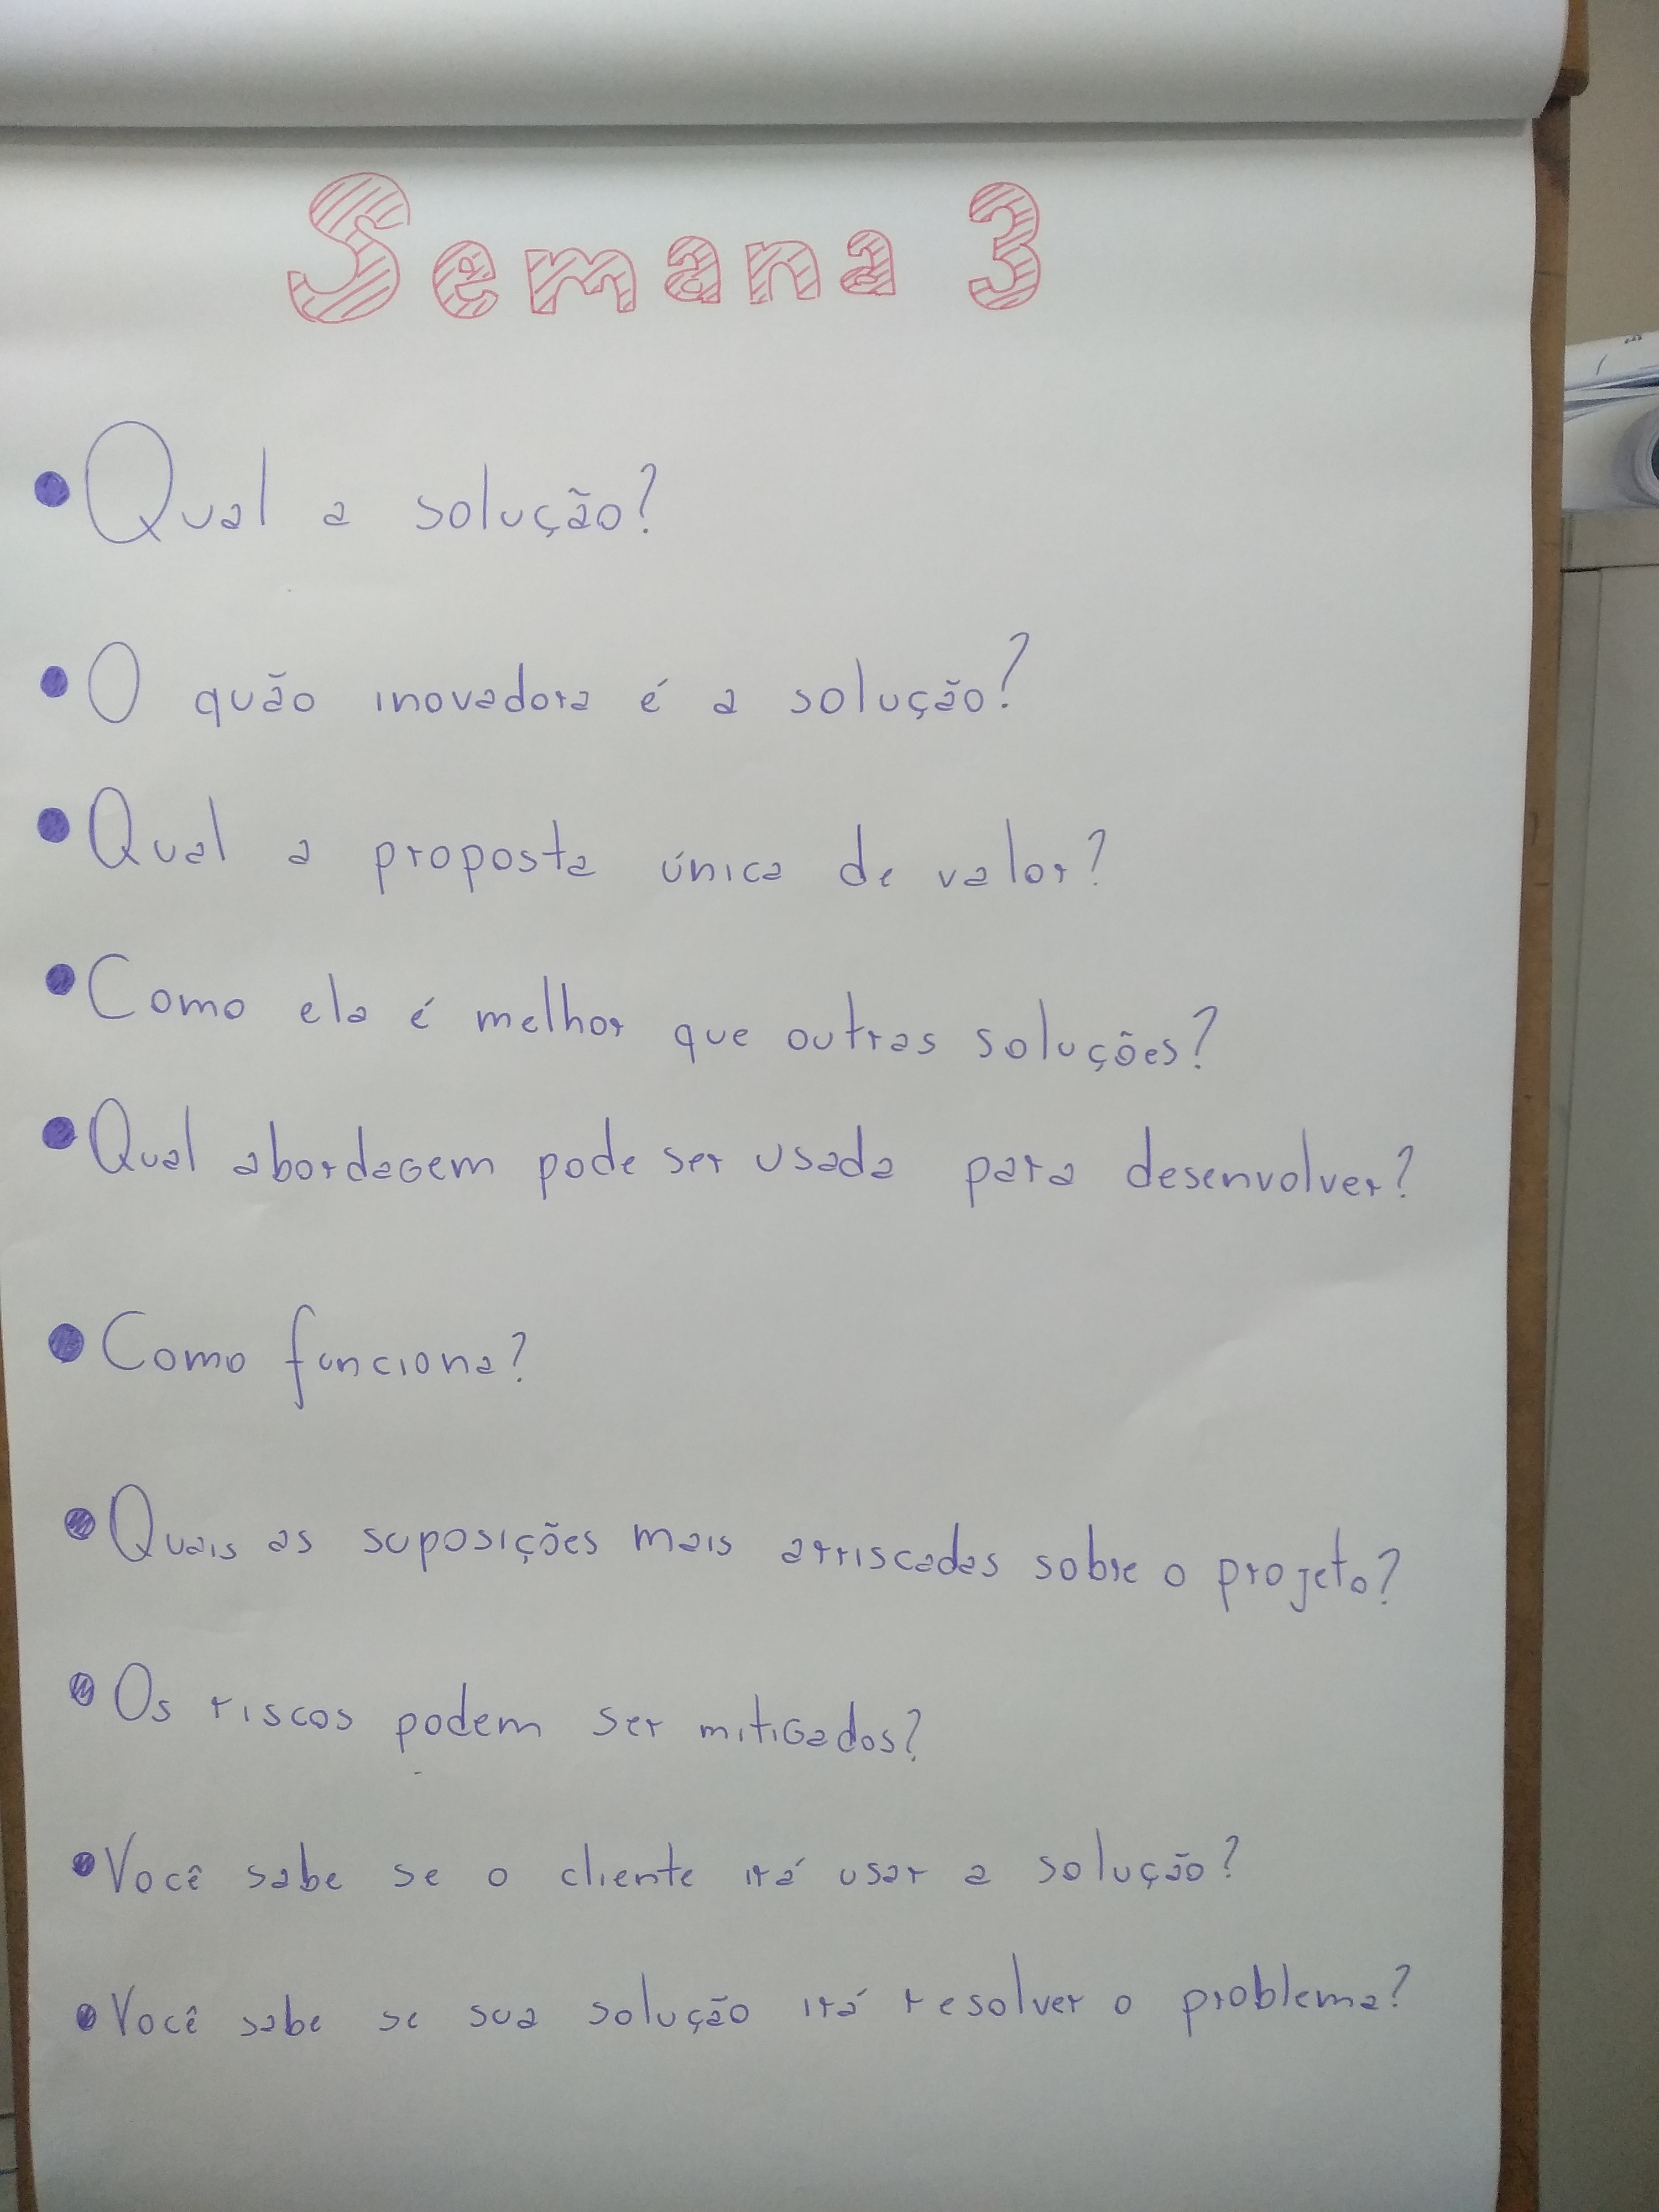 Semana 3
• Qual a solução?
• O quão inovadora é a solução?
• Qual a proposta única de valor?
• Como ela é melhor que outras soluções?
• Qual abordagem pode ser usada para desenvolver?
• Como funciona?
• Quais as suposições mais arriscadas sobre o projeto?
• Os riscos podem ser mitigados?
• Você sabe se o cliente irá usar a solução?
• Você sabe se sua solução irá resolver o problema?